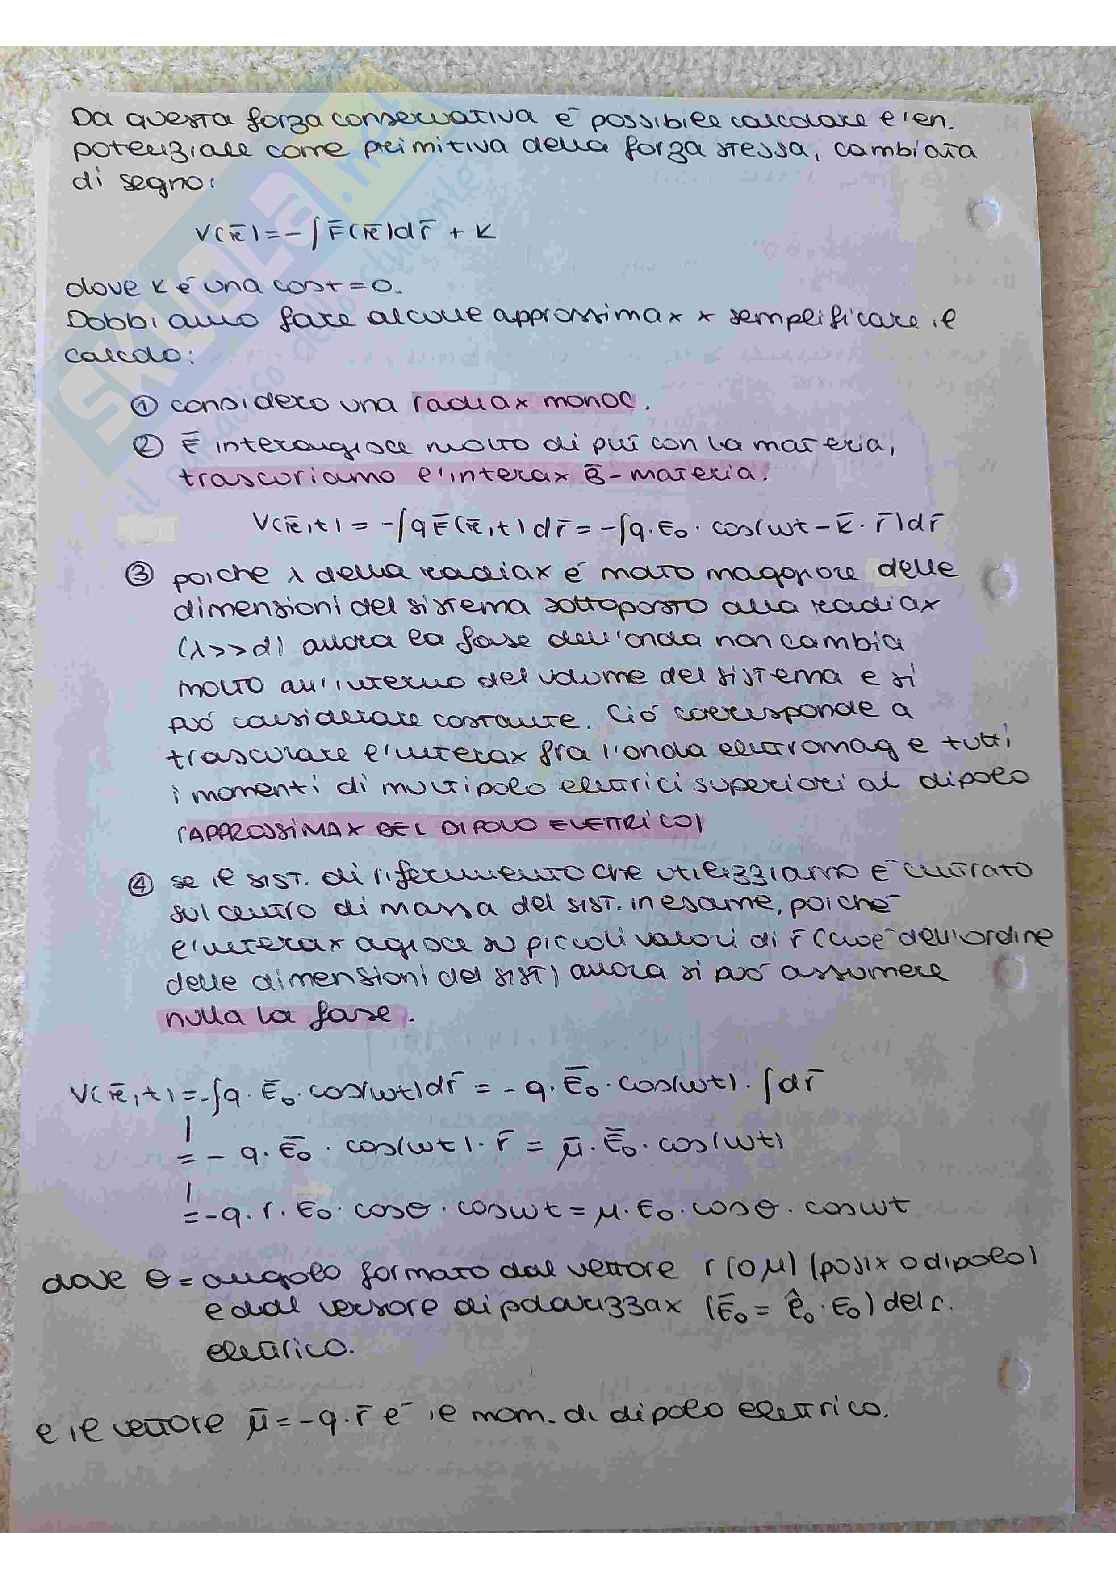 SKUOLA.net
il paradiso dello studente
Da questa forza conservativa é possibile calcolare l'en.
potenziale come primitiva della forza stessa, cambiata
di segno:
V(r̄)=-∫F̄(r̄)dr̄ + K
dove K é una cost=0.
Dobbiamo fare alcune approssimax x semplificare il
calcolo:
① considero una radiax monoc.
② Ē interagisce molto di più con la materia,
trascuriamo l'interax B̄-materia.
V(r̄,t) = -∫qĒ(r̄,t)dr̄ = -∫q·E₀·cos(ωt-k̄·r̄)dr̄
③ poiche λ della radiax é molto maggiore delle
dimensioni del sistema sottoposto alla radiax
(λ>>d) allora la fase dell'onda non cambia
molto all'interno del volume del sistema e si
può considerare costante. Ció corrisponde a
trascurare l'interax fra l'onda elettromag e tutti
i momenti di multipolo elettrici superiori al dipolo
(APPROSSIMAX DEL DIPOLO ELETTRICO)
④ se il sist. di riferimento che utilizziamo é centrato
sul centro di massa del sist. in esame, poiché
l'interax agisce su piccoli valori di r̄ (cioé dell'ordine
delle dimensioni del sist) allora si può assumere
nulla la fase.
V(r̄,t)=-∫q·Ē₀·cos(ωt)dr̄ = -q·Ē₀·cos(ωt)·∫dr̄
= -q·Ē₀·cos(ωt)·r̄ = μ̄·Ē₀·cos(ωt)
=-q·r·E₀·cosθ·cosωt = μ·E₀·cosθ·cosωt
dove θ = angolo formato dal vettore r (o μ) (posix o dipolo)
e dal versore di polarizzax (Ē₀ = ê₀·E₀) del c.
elettrico.
e il vettore μ̄ = -q·r̄ é il mom. di dipolo elettrico.